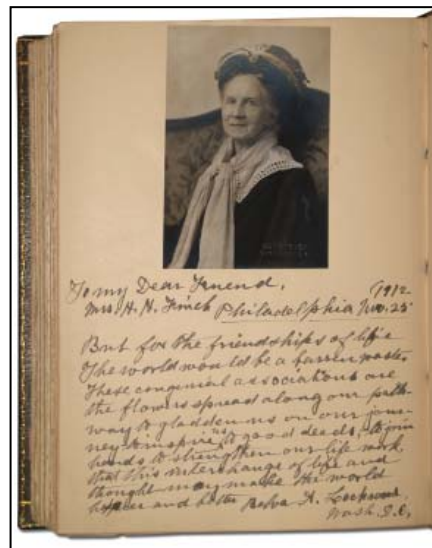 To my Dear Friend,
1912
Mrs H. H. Finch Philadelphia Nov. 25
But for the friendships of life
The world would be a barren waste,
These congenial associations are
the flowers spread along our path-
way to gladden us on our jour-
ney to inspire us to good deeds, to join
hands to strengthen our life work
that this interchange of life and
thought may make the world
happier and better
Belva A. Lockwood
Wash. D.C.